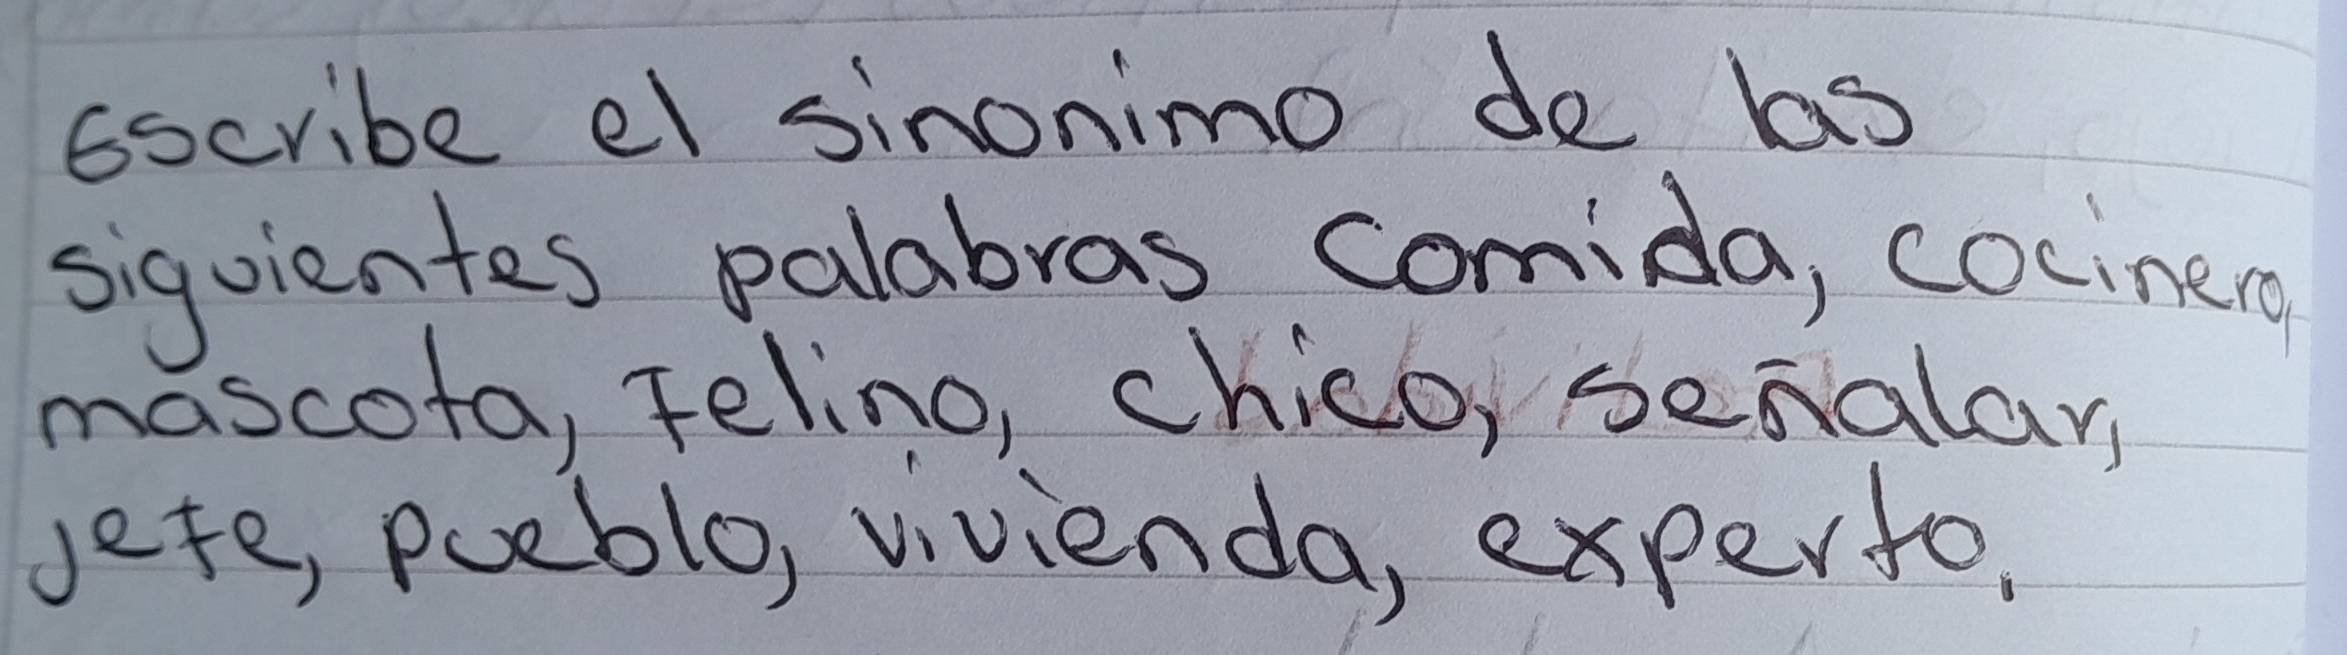 Escribe el sinonimo de las
siguientes palabras comida, cocinero,
mascota, Felino, chico, señalar,
jefe, pueblo, vivienda, experto.